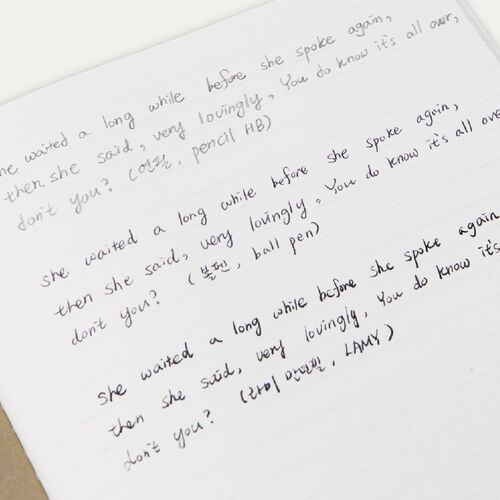 he waited a long while before she spoke again,
then she said, very lovingly, You do know it's all over,
don't you? (연필, pencil HB)
she waited a long while before she spoke again,
then she said, very lovingly, You do know it's all over
don't you? (볼펜, ball pen)
she waited a long while before she spoke again
then she said, very lovingly, You do know it's
don't you? (라미 만년필, LAMY)